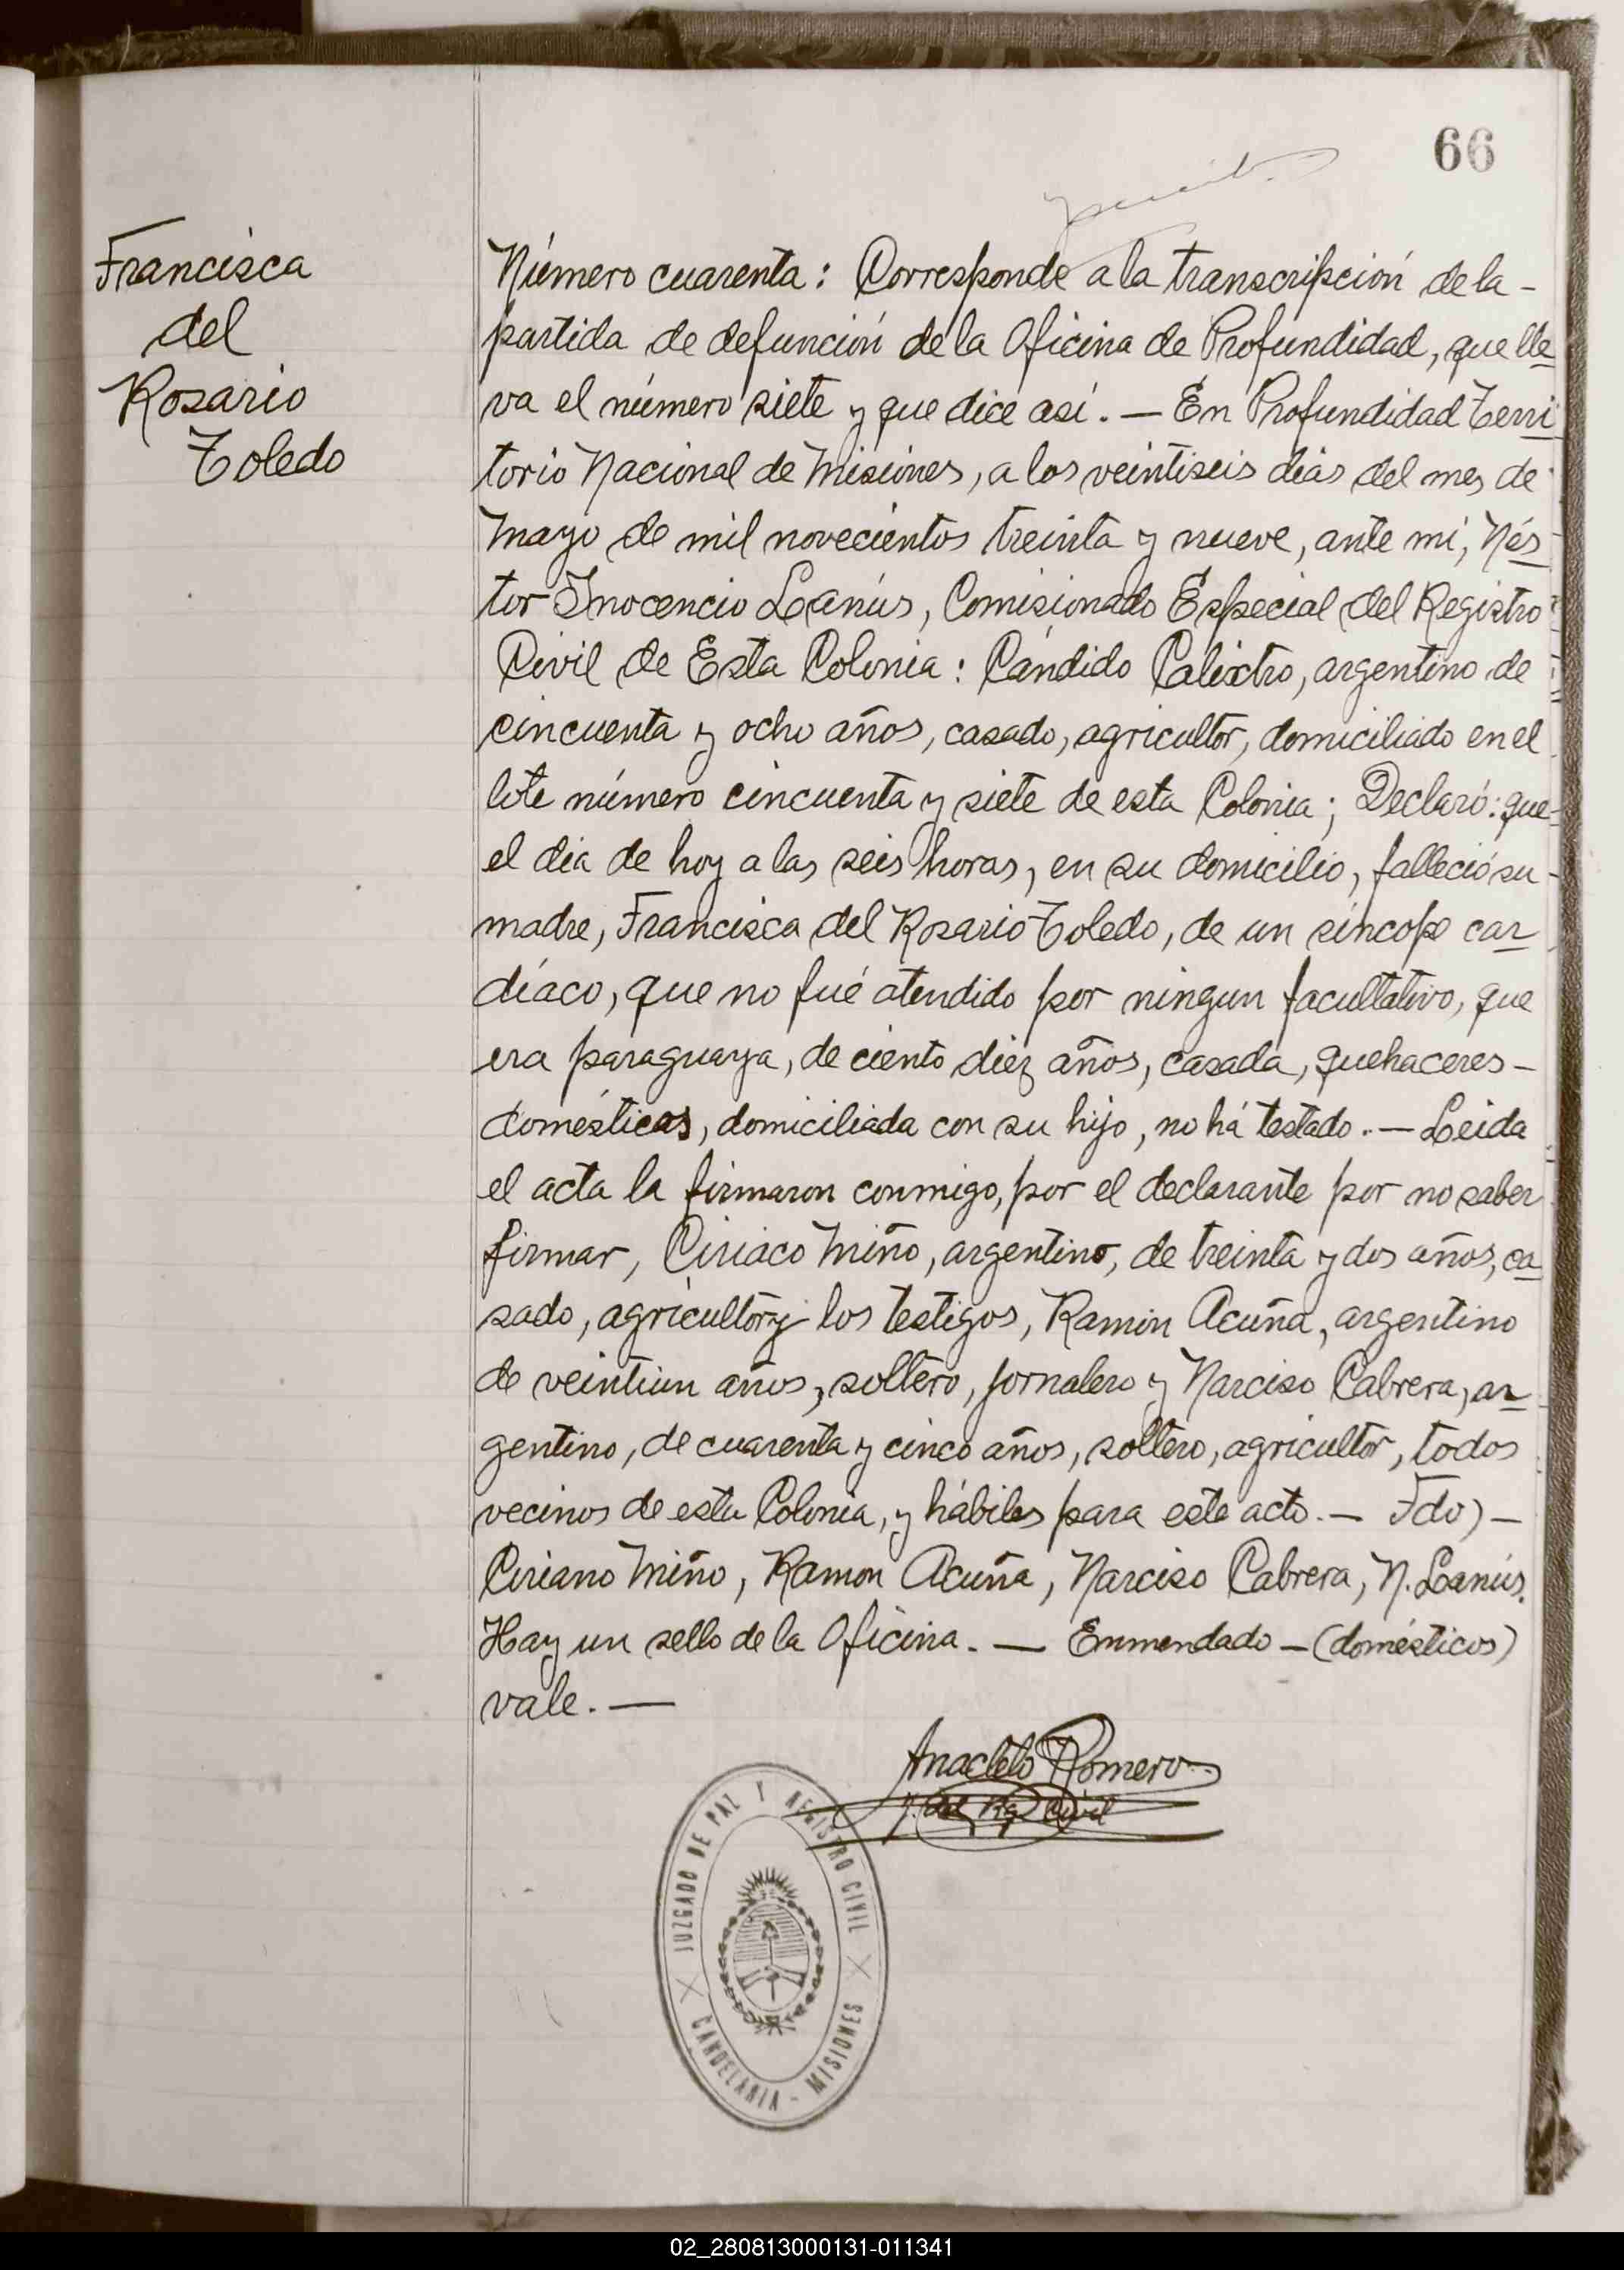 66
Francisca
del
Rosario
Toledo
Número cuarenta: Corresponde a la transcripción de la -
partida de defunción de la Oficina de Profundidad, que lle
va el número siete y que dice así. — En Profundidad Terri
torio Nacional de Misiones, a los veintiseis dias del mes de
Mayo de mil novecientos treinta y nueve, ante mi, Nés
tor Inocencio Lanús, Comisionado Especial del Registro
Civil de Esta Colonia: Cándido Calixtro, argentino de
cincuenta y ocho años, casado, agricultor, domiciliado en el
lote número cincuenta y siete de esta Colonia; Declaró: que
el dia de hoy a las seis horas, en su domicilio, falleció su -
madre, Francisca del Rosario Toledo, de un síncope car
díaco, que no fué atendido por ningun facultativo, que
era paraguaya, de ciento diez años, casada, quehaceres -
domésticos, domiciliada con su hijo, no há testado. — Leida
el acta la firmaron conmigo, por el declarante por no saber
firmar, Ciriaco Miño, argentino, de treinta y dos años, ca
sado, agricultor y los testigos, Ramón Acuña, argentino
de veintiun años, soltero, jornalero y Narciso Cabrera, ar
gentino, de cuarenta y cinco años, soltero, agricultor, todos
vecinos de esta Colonia, y hábiles para este acto. — Fdo) —
Ciriano Miño, Ramon Acuña, Narciso Cabrera, N. Lanús.
Hay un sello de la Oficina. — Enmendado — (domésticos)
vale. —
Anacleto Romero
J. del Rg. Civil
JUZGADO DE PAZ Y REGISTRO CIVIL
CANDELARIA - MISIONES
02_280813000131-011341